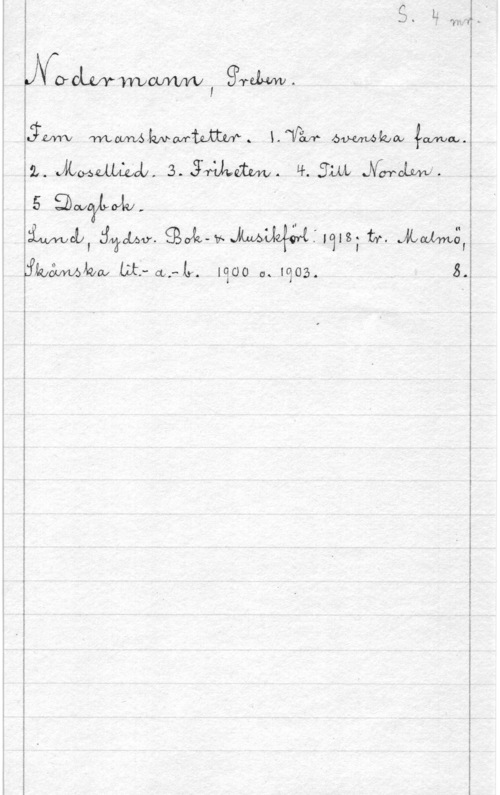 S. 4 mr.
Nodermann, Preben.
Fem manskvartetter. 1. Vår svenska fana.
2. Mosellied. 3. Friheten. 4. Till Norden.
5 Dagbok.
Lund, Sydsv. Bok- & Musikförl. 1918; tr. Malmö,
Skånska lit.- a.- b. 1900 o. 1903. 8.